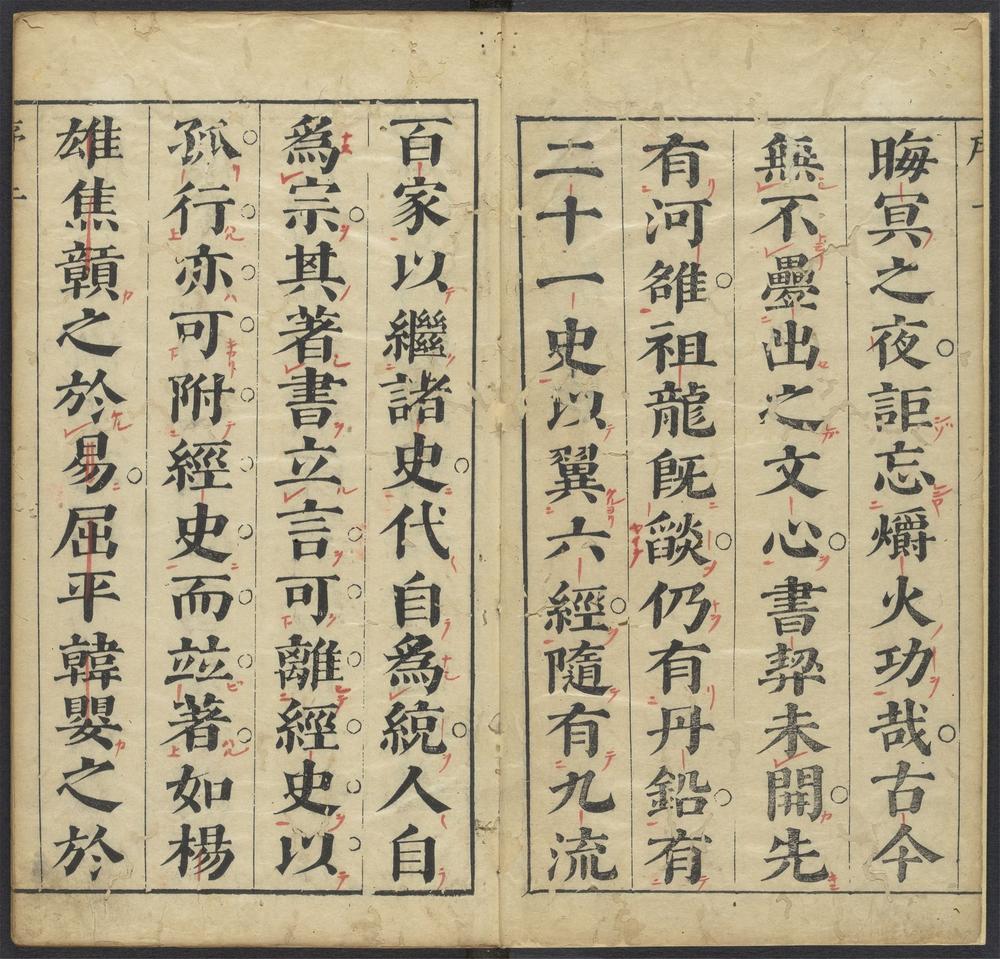 晦冥之夜詎忘爝火功哉古今
無不疊出之文心書契未開先
有河雒祖龍既燄仍有丹鉛有
二十一史以翼六經隨有九流
百家以繼諸史代自爲統人自
爲宗其著書立言可離經史以
孤行亦可附經史而竝著如楊
雄焦贑之於易屈平韓嬰之於